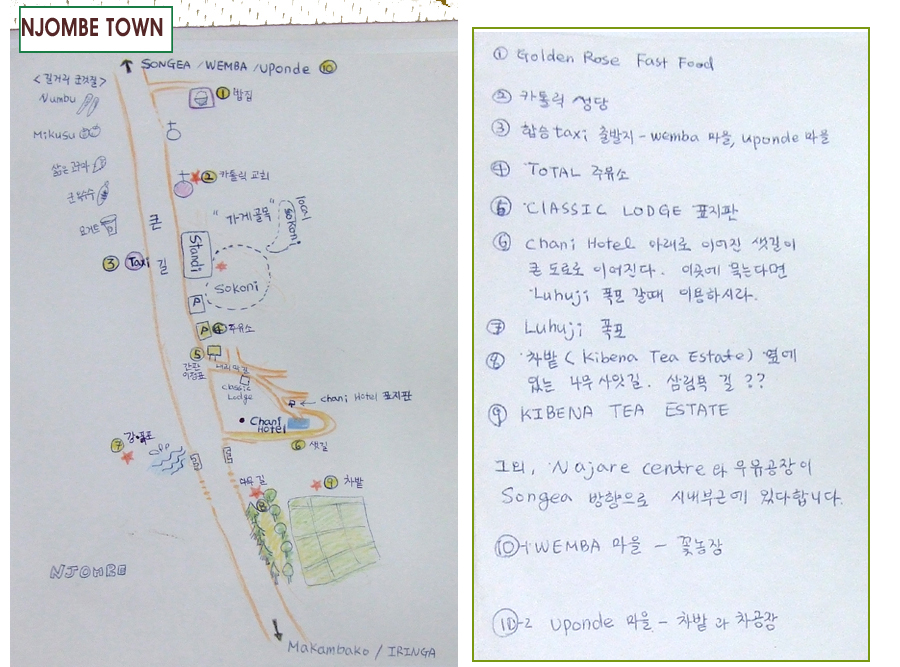 NJOMBE TOWN
SONGEA / WEMBA / Uponde ⑩
<길거리 군것질>
Numbu
Mikusu
삶은 과자
군옥수수
요거트
① 밥집
② 카톨릭 교회
"가게골목"
local
SOKONI
큰
길
③ Taxi
Standi
Sokoni
P
P ④ 주유소
⑤
간판
이정표
내리막길
classic
Lodge
chani Hotel 표지판
Chani
HOTEL
⑥ 샛길
⑦ 강·폭포
나무길
⑧
⑨ 차밭
NJOMBE
Makambako / IRINGA
① Golden Rose Fast Food
② 카톨릭 성당
③ 합승 taxi 출발지 - wemba 마을, uponde 마을
④ TOTAL 주유소
⑤ CLASSIC LODGE 표지판
⑥ Chani Hotel 아래로 이어진 샛길이
큰 도로로 이어진다. 이곳에 묵는다면
Luhuji 폭포 갈때 이용하시라.
⑦ Luhuji 폭포
⑧ 차밭 ( Kibena Tea Estate) 옆에
있는 나무 사잇길. 삼림욕 길 ??
⑨ KIBENA TEA ESTATE
그외, Najare centre 와 우유공장이
Songea 방향으로 시내부근에 있다합니다.
⑩-1 WEMBA 마을 - 꽃농장
⑩-2 Uponde 마을 - 차밭 과 차공장